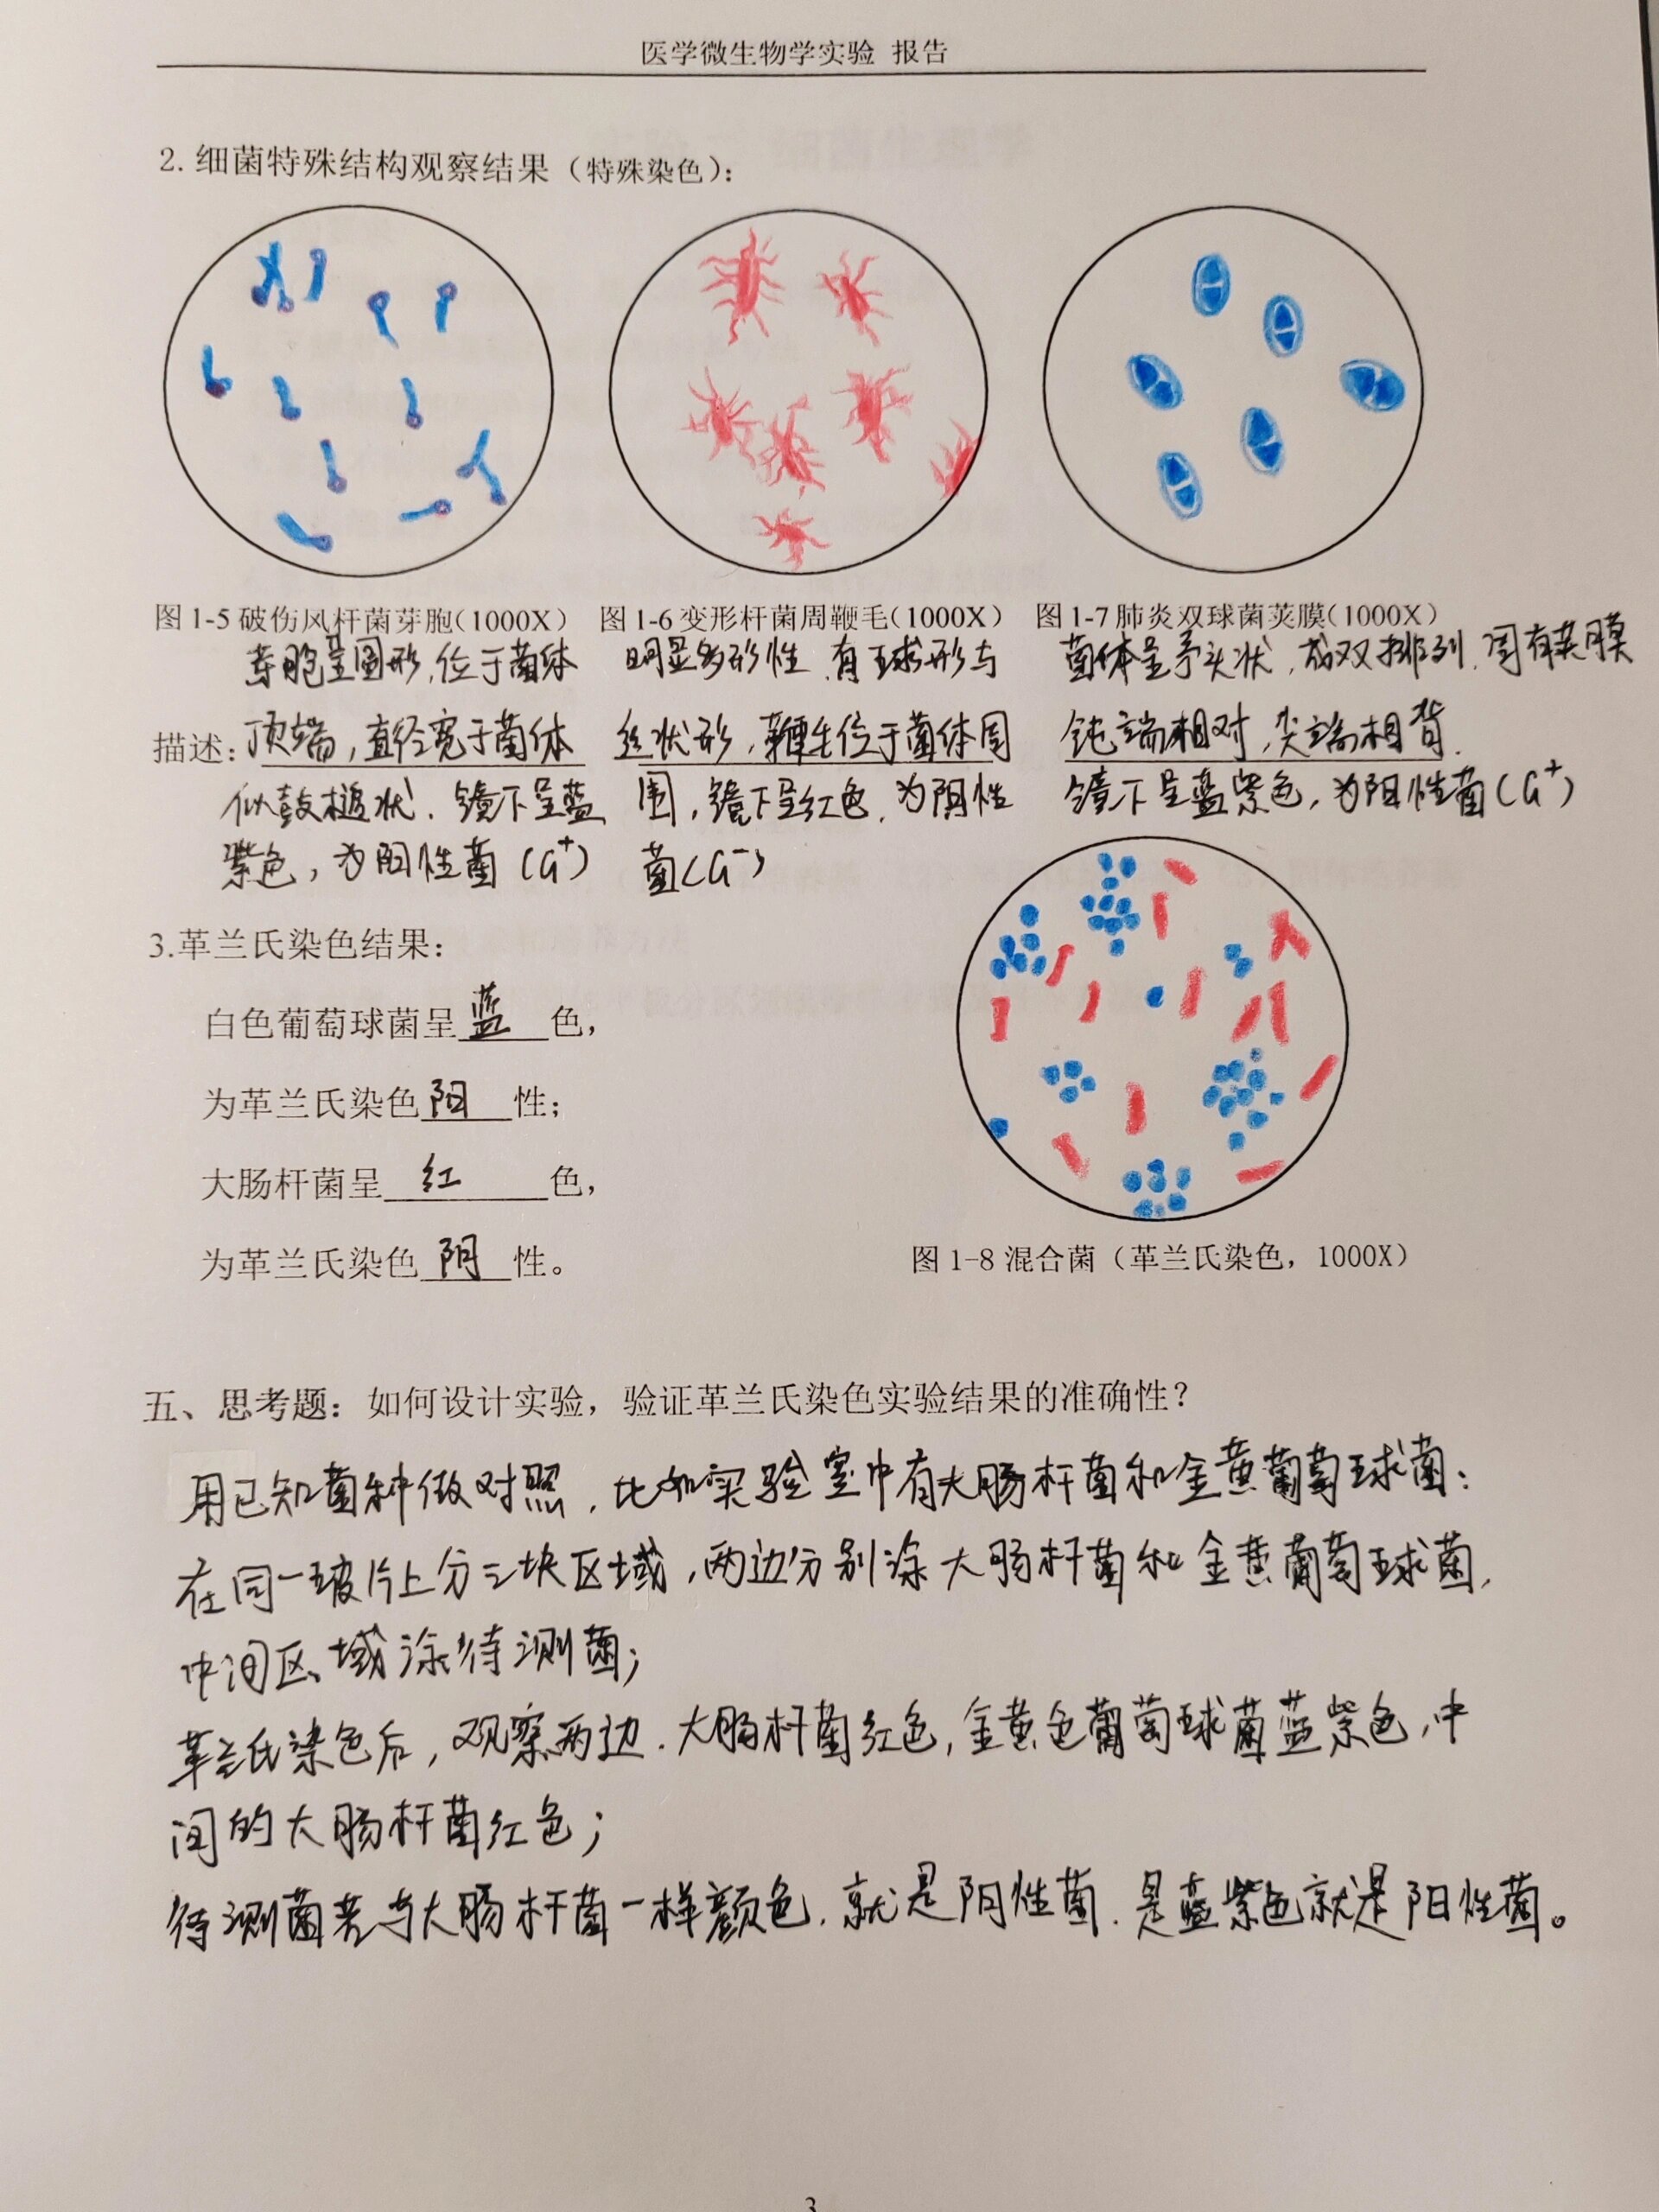 医学微生物学实验 报告
2. 细菌特殊结构观察结果（特殊染色）：
图 1-5 破伤风杆菌芽胞(1000X) 图 1-6 变形杆菌周鞭毛(1000X) 图 1-7 肺炎双球菌荚膜(1000X)
芽胞呈圆形,位于菌体 明显多形性,有球形与 菌体呈矛头状,成双排列,周有荚膜
描述：顶端,直径宽于菌体 丝状形,鞭毛位于菌体周 钝端相对,尖端相背.
似鼓槌状.镜下呈蓝 围,镜下呈红色,为阴性 镜下呈蓝紫色,为阳性菌(G⁺)
紫色,为阳性菌(G⁺) 菌(G⁻)
3.革兰氏染色结果：
白色葡萄球菌呈 蓝 色，
为革兰氏染色 阳 性；
大肠杆菌呈 红 色，
为革兰氏染色 阴 性。
图 1-8 混合菌（革兰氏染色，1000X）
五、思考题：如何设计实验，验证革兰氏染色实验结果的准确性？
用已知菌种做对照,比如实验室中有大肠杆菌和金黄葡萄球菌：
在同一玻片上分三块区域,两边分别涂大肠杆菌和金黄葡萄球菌,
中间区域涂待测菌；
革兰氏染色后,观察两边.大肠杆菌红色,金黄色葡萄球菌蓝紫色,中
间的大肠杆菌红色；
待测菌若与大肠杆菌一样颜色,就是阴性菌.是蓝紫色就是阳性菌。
3